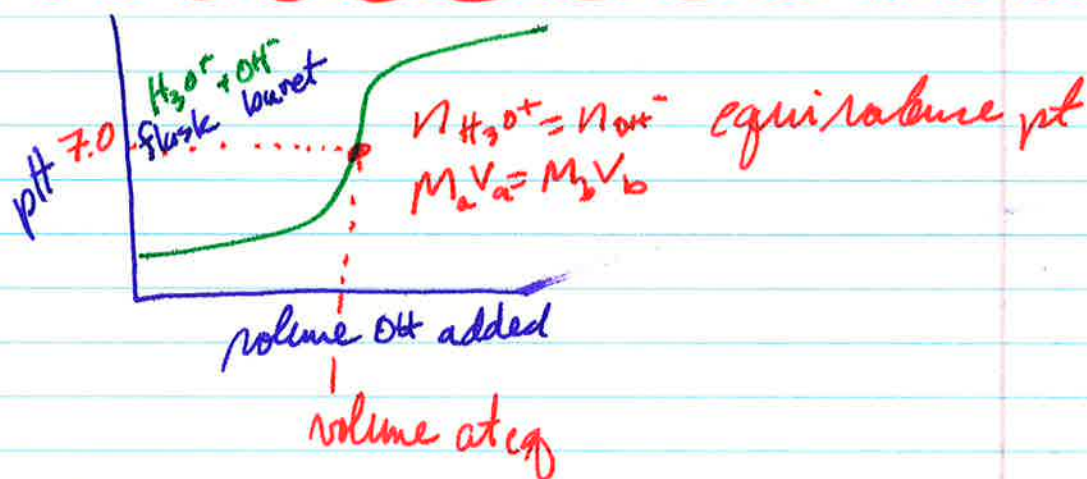 H₃O⁺ + OH⁻
flask buret
pH 7.0
n H₃O⁺ = n OH⁻ equivalence pt
MₐVₐ = M_bV_b
volume OH added
volume at eq